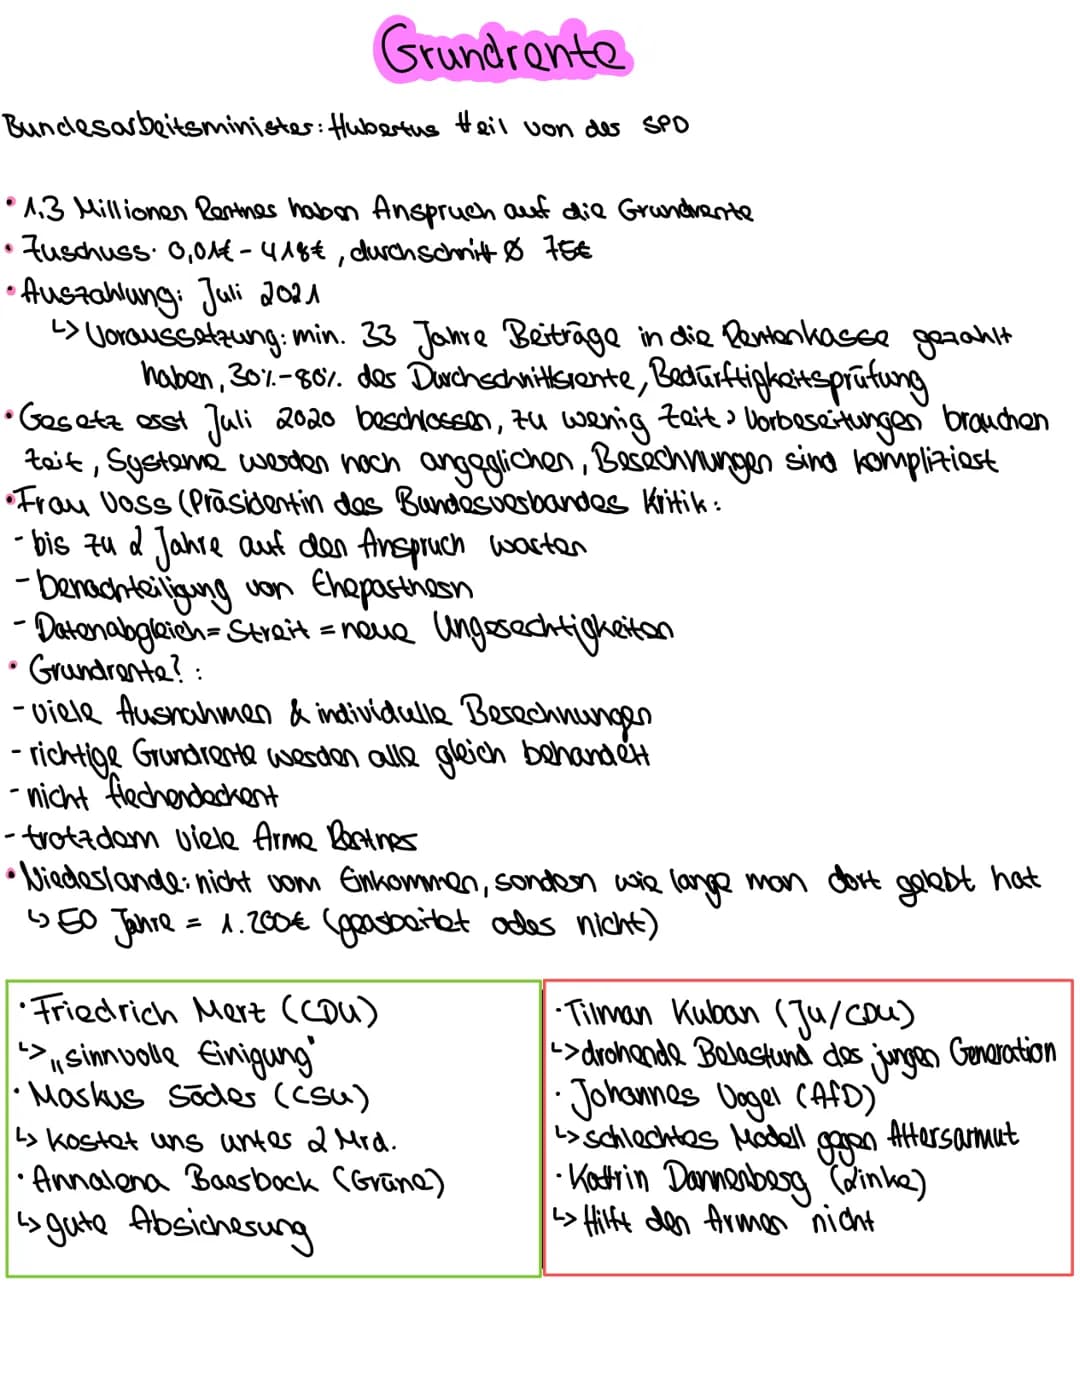 Grundrente
Bundesarbeitsminister: Hubertus Heil von der SPD
• 1,3 Millionen Rentner haben Anspruch auf die Grundrente
• Zuschuss: 0,01€ - 418€, durchschnitt Ø 75€
• Auszahlung: Juli 2021
↳ Voraussetzung: min. 33 Jahre Beiträge in die Rentenkasse gezahlt
haben, 30%-80% der Durchschnittsrente, Bedürftigkeitsprüfung
• Gesetz erst Juli 2020 beschlossen, zu wenig Zeit, Vorbereitungen brauchen
Zeit, Systeme werden noch angeglichen, Berechnungen sind kompliziert
• Frau Voss (Präsidentin des Bundesverbandes Kritik:
- bis zu 2 Jahre auf den Anspruch warten
- benachteiligung von Ehepartnern
- Datenabgleich = Streit = neue Ungerechtigkeiten
• Grundrente? :
- viele Ausnahmen & individulle Berechnungen
- richtige Grundrente werden alle gleich behandelt
- nicht flechendeckent
- trotzdem viele Arme Rentner
• Niederlande: nicht vom Einkommen, sondern wie lange man dort gelebt hat
↳ 50 Jahre = 1.200€ (gearbeitet oder nicht)
• Friedrich Merz (CDU)
↳ „sinnvolle Einigung"
• Markus Söder (CSU)
↳ kostet uns unter 2 Mrd.
• Annalena Baerbock (Grüne)
↳ gute Absicherung
• Tilman Kuban (JU/CDU)
↳ drohende Belastund der jungen Generation
• Johannes Vogel (AfD)
↳ schlechtes Modell gegen Altersarmut
• Katrin Dannenberg (Linke)
↳ Hilft den Armen nicht